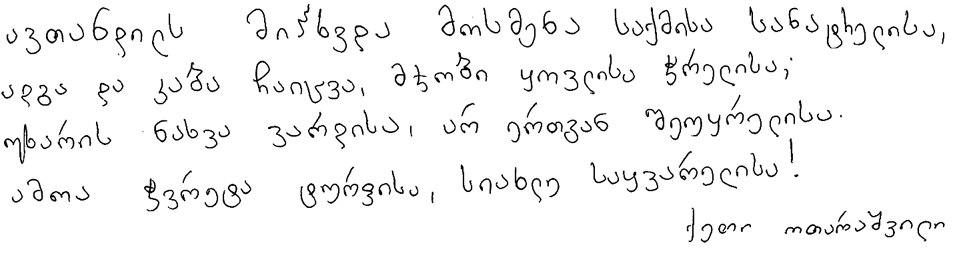 ავთანდილს მიჰხვდა მოსმენა საქმისა სანატრელისა,
ადგა და კაბა ჩაიცვა, მჯობი ყოვლისა ჭრელისა;
უხარის ნახვა ვარდისა, არ ერთგან შეუყრელისა.
ამოა ჭვრეტა ტურფისა, სიახლე საყვარელისა!
ქეთი ოთარაშვილი